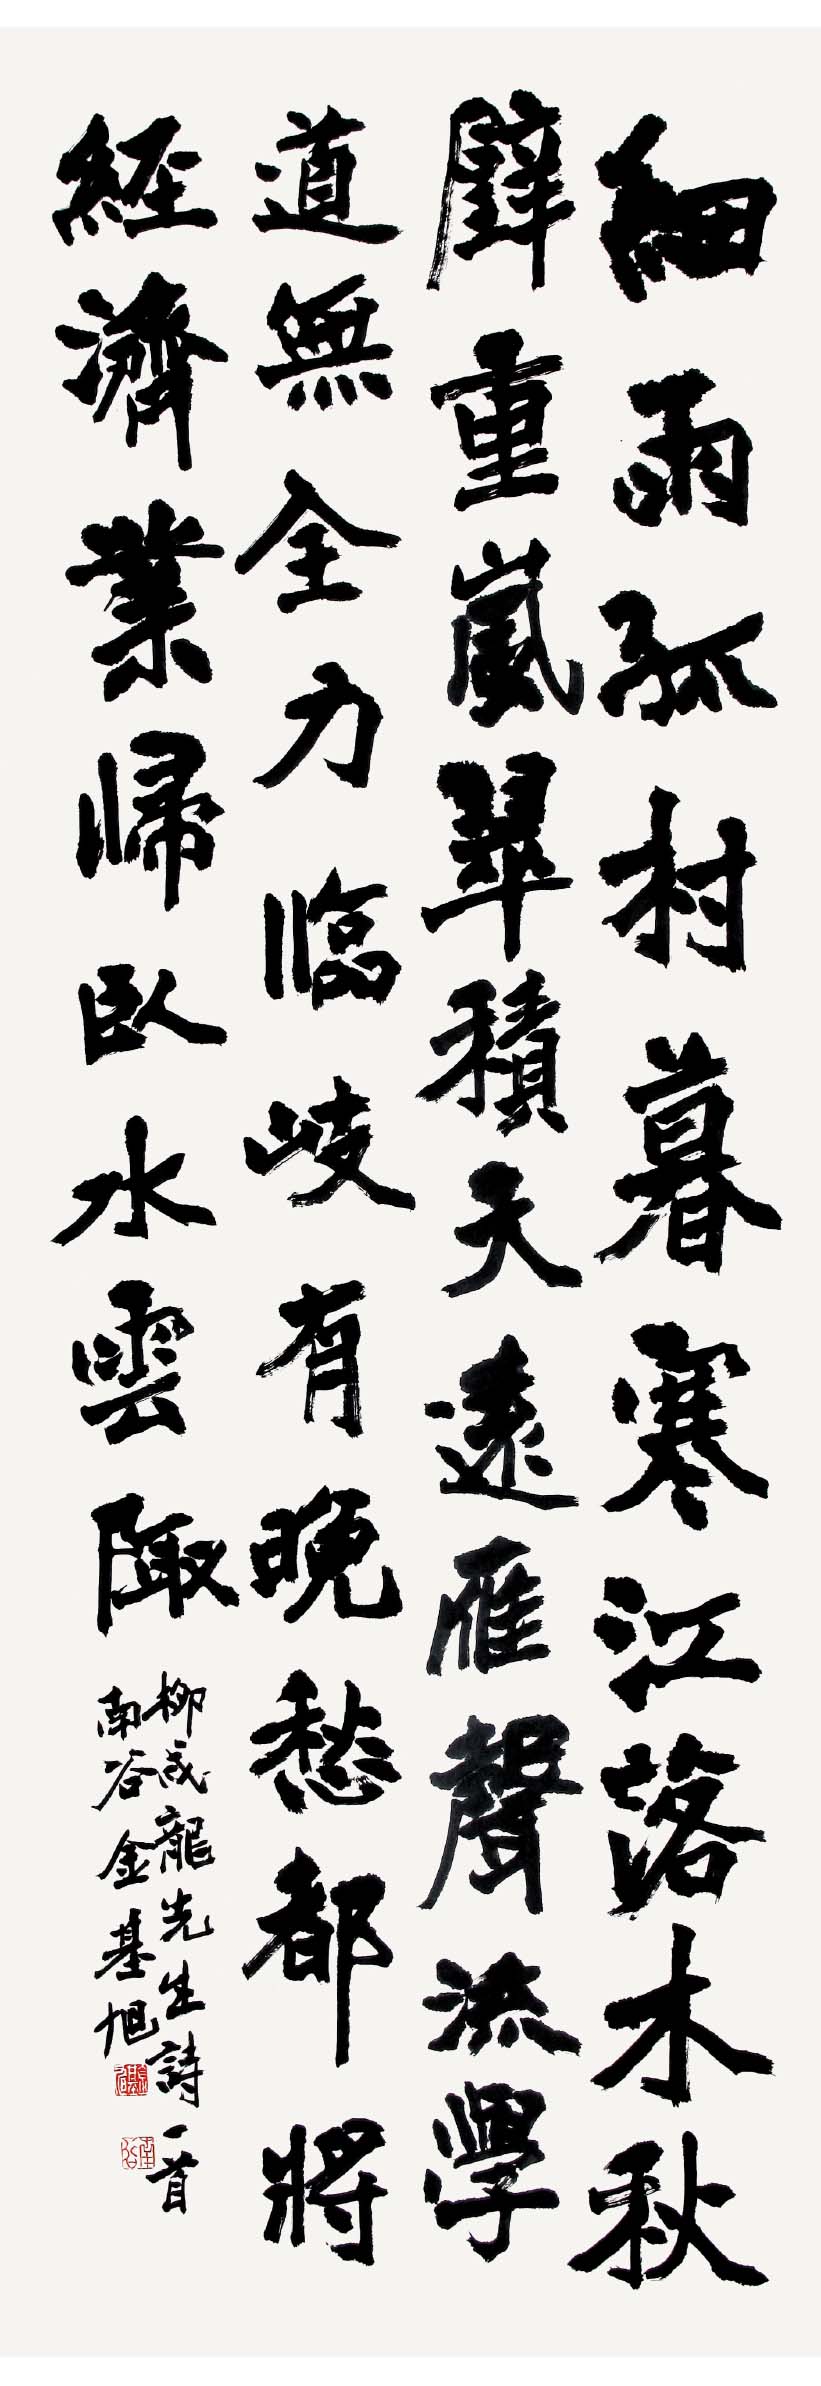 細雨孤村暮寒江落木秋
壁重嵐翠積天遠雁聲流學
道無全力臨岐有晩愁都將
經濟業帰臥水雲陬
柳成龍先生詩一首
南谷金基旭
南谷